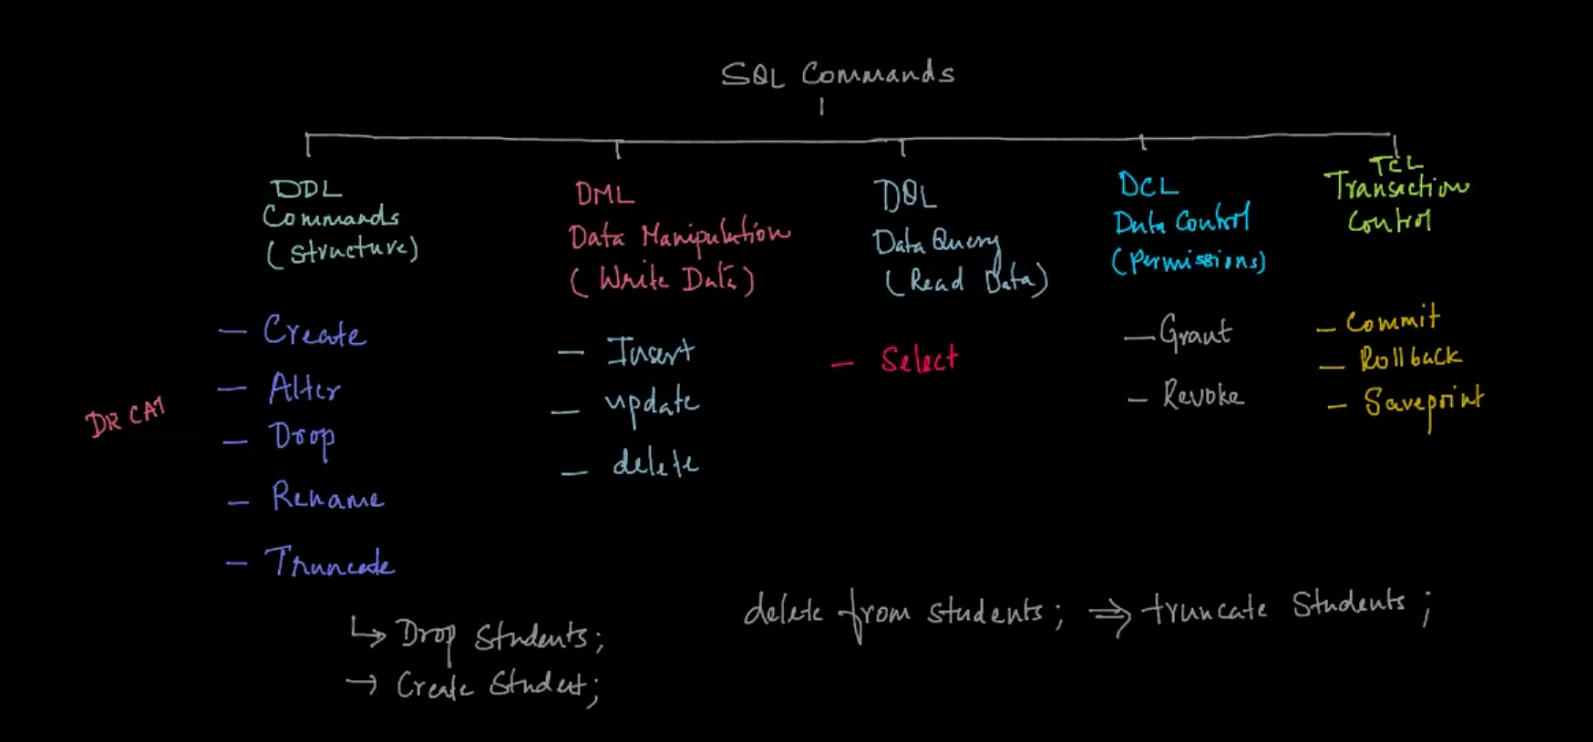 SQL Commands
DDL
Commands
(Structure)
- Create
- Alter
- Drop
- Rename
- Truncate
DR CAT
↳ Drop Students;
→ Create Student;
DML
Data Manipulation
(Write Data)
- Insert
- update
- delete
DQL
Data Query
(Read Data)
- Select
DCL
Data Control
(Permissions)
- Grant
- Revoke
TCL
Transaction
Control
- Commit
- Rollback
- Savepoint
delete from students; ⇒ truncate Students;